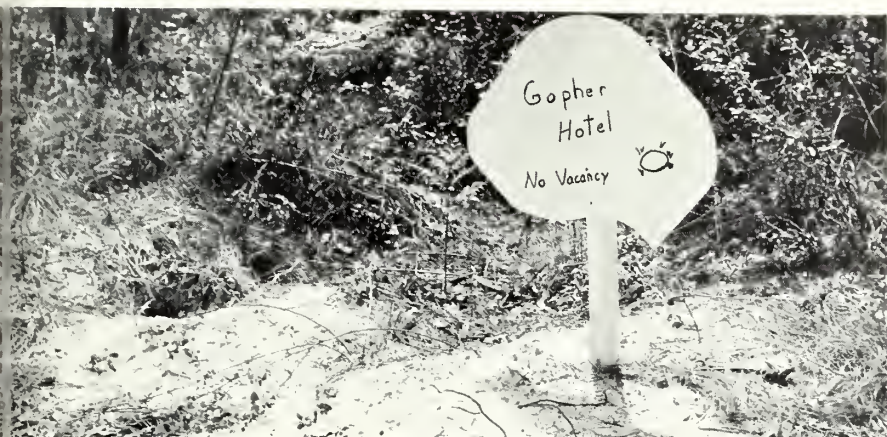 Gopher
Hotel
No Vacancy